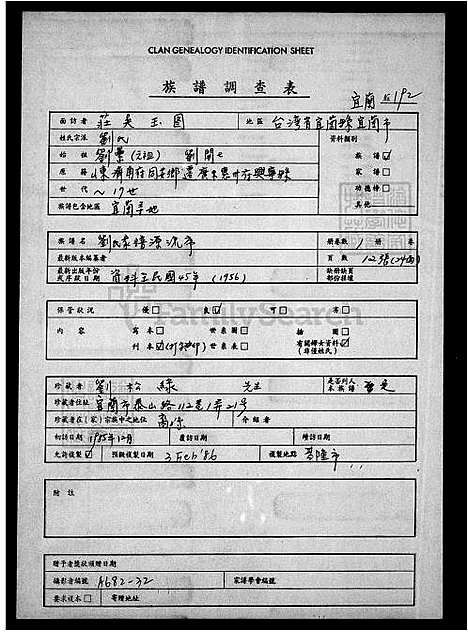 CLAN GENEALOGY IDENTIFICATION SHEET
族譜調查表
宜蘭 192
面訪者 莊吳玉圖 地區 台灣省宜蘭縣宜蘭市
姓氏宗派 劉氏 資料類別
始祖 劉榮(元祖) 劉開七 族譜☑
原籍 家譜□
世代 ~17世 功德榜□
族譜包含地區 宜蘭 其他
族譜名 劉氏家譜源流 冊卷數 1冊 卷
最新版本編纂者 頁數
最新出版年份或序跋日期 資料至民國45年 (1956) 缺冊缺頁部份註證
保管狀況 優□ 良☑ 可□ 劣□
內容 寫本□ 世系圖□ 插圖□
刊本☑ 世系表□ 有關婦女資料☑(非僅姓氏)
珍藏者 劉松綠 先生 是否列入本族譜 是
珍藏者住址 宜蘭市泰山路112巷1弄21號
珍藏者在(家)宗族中之地位 介紹者
初訪日期 1985年12月 覆訪日期 贈訪日期
允許複製☑ 預擬複製日期 3 Feb '86 複製地點 基隆市
附註
贈予者獎狀頒贈日期
編影者編號 A682-32 家譜學會編號
要求複本□ 寄贈地址
FamilySearch